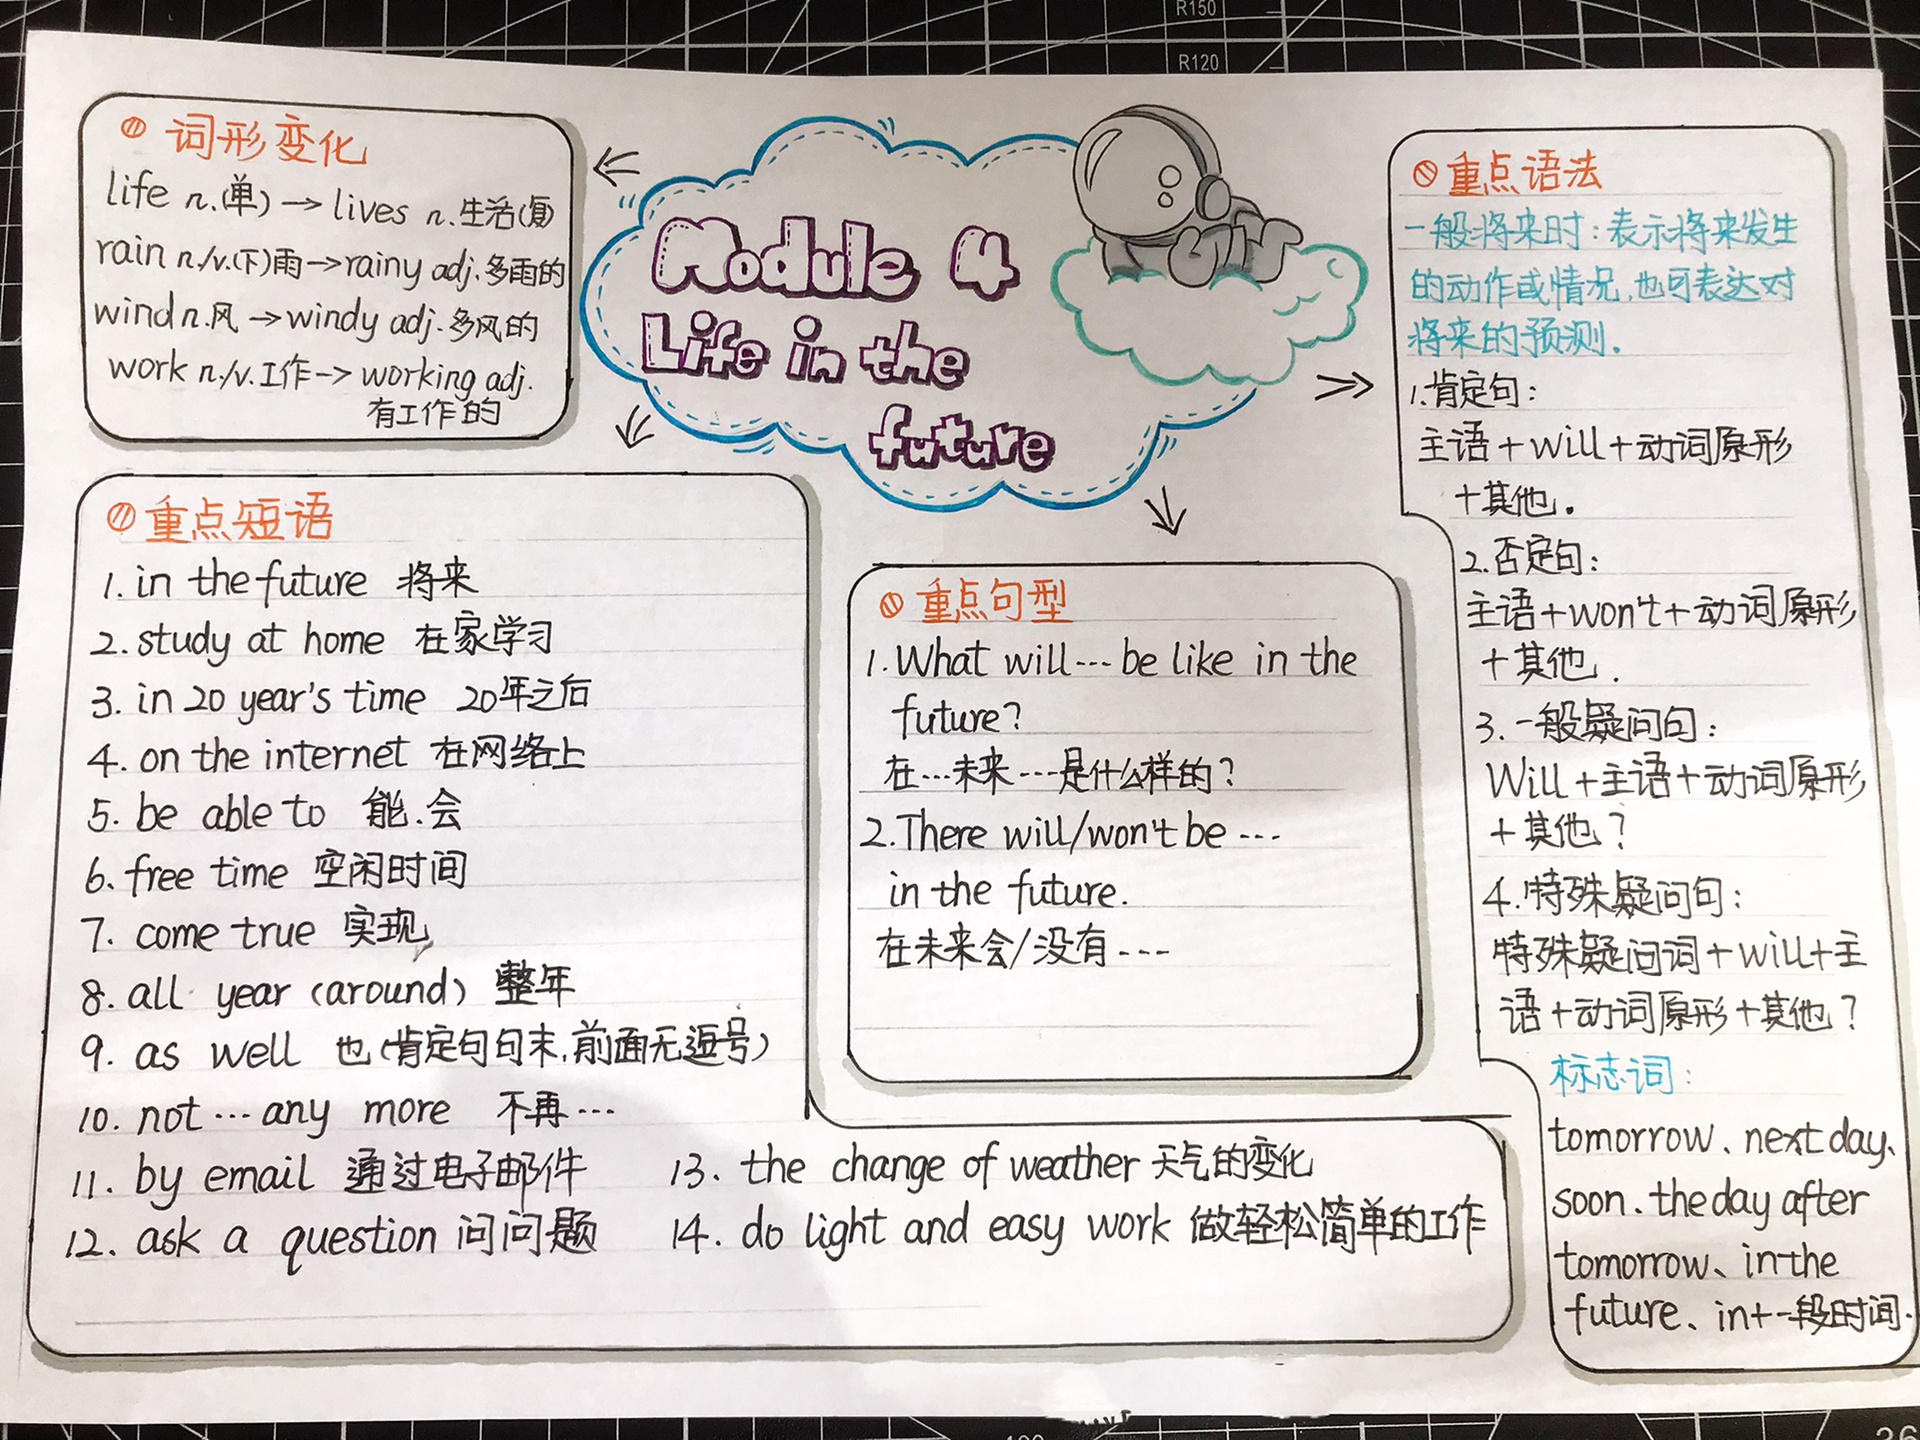 R150
R120
Module 4
Life in the
future
词形变化
life n.(单) → lives n.生活(复)
rain n./v.(下)雨→rainy adj.多雨的
wind n.风 → windy adj.多风的
work n./v.工作→ working adj.
有工作的
重点短语
1. in the future 将来
2. study at home 在家学习
3. in 20 year's time 20年之后
4. on the internet 在网络上
5. be able to 能.会
6. free time 空闲时间
7. come true 实现
8. all year (around) 整年
9. as well 也(肯定句句末,前面无逗号)
10. not … any more 不再…
11. by email 通过电子邮件
12. ask a question 问问题
13. the change of weather 天气的变化
14. do light and easy work 做轻松简单的工作
重点句型
1. What will --- be like in the
future?
在…未来…是什么样的?
2. There will/won't be ---
in the future.
在未来会/没有---
重点语法
一般将来时:表示将来发生
的动作或情况,也可表达对
将来的预测.
1.肯定句:
主语+will+动词原形
+其他.
2.否定句:
主语+won't+动词原形
+其他.
3.一般疑问句:
Will+主语+动词原形
+其他?
4.特殊疑问句:
特殊疑问词+will+主
语+动词原形+其他?
标志词:
tomorrow、next day、
soon、the day after
tomorrow、in the
future、in+一段时间.